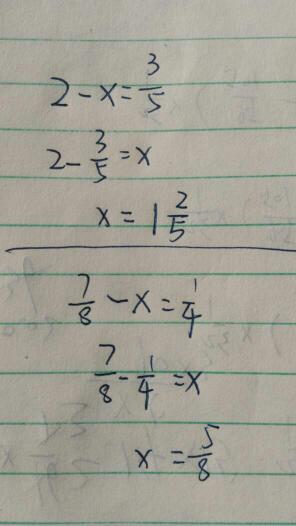 2 - x = 3/5
2 - 3/5 = x
x = 1 2/5
7/8 - x = 1/4
7/8 - 1/4 = x
x = 5/8